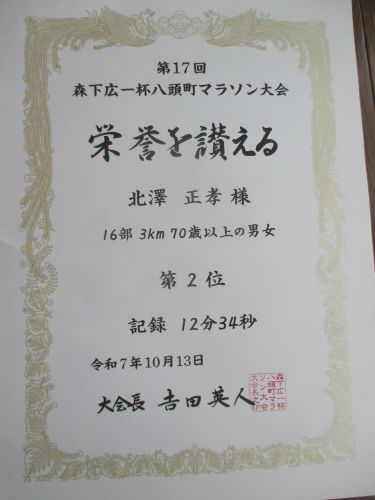 第17回
森下広一杯八頭町マラソン大会
栄誉を讃える
北澤 正孝 様
16部 3km 70歳以上の男女
第2位
記録 12分34秒
令和7年10月13日
大会長 吉田英人
森下広一杯
八頭町マラ
ソン大会
大会長之印